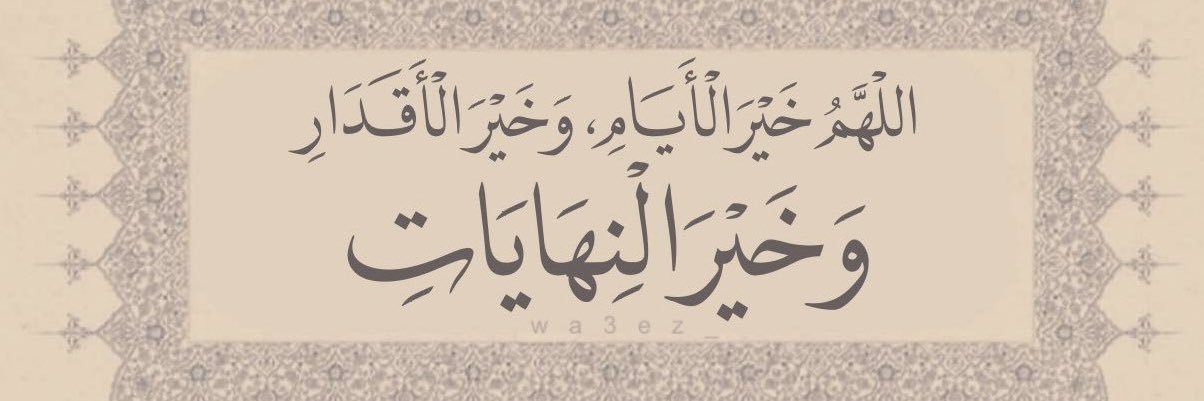 اللْهَّمُ خَيْرَ الْأَيَامِ، وَخَيْرَ الْأَقَدَارِ
وَخَيْرَ الْنِهَايَاتِ
_wa3ez_